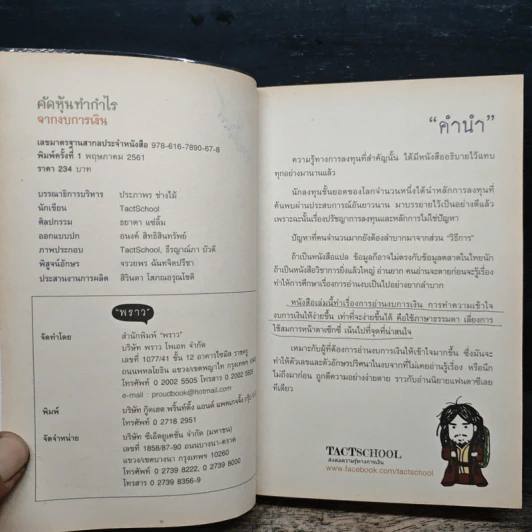 คัดหุ้นทำกำไร
จากงบการเงิน
เลขมาตรฐานสากลประจำหนังสือ 978-616-7890-67-8
พิมพ์ครั้งที่ 1 พฤษภาคม 2561
ราคา 234 บาท
บรรณาธิการบริหาร ประภาพร ช่างไม้
นักเขียน TactSchool
ศิลปกรรม ธยาดา แซ่ลิ้ม
ออกแบบปก อนงค์ สิทธิสินทรัพย์
ภาพประกอบ TactSchool, ธีรญาณ์ภา บัวดี
พิสูจน์อักษร จรวยพร นันทจิตปรีชา
ประสานงานการผลิต สิรินดา โสภณอรุณโชติ
"พราว"
จัดทำโดย สำนักพิมพ์ "พราว"
บริษัท พราว โพเอท จำกัด
เลขที่ 1077/41 ชั้น 12 อาคารไซมิส ราชครู
ถนนพหลโยธิน แขวง/เขตพญาไท กรุงเทพฯ
โทรศัพท์ 0 2002 5505 โทรสาร 0 2002
e-mail : proudbook@hotmail.com
พิมพ์ บริษัท กู๊ดเฮด พริ้นท์ติ้ง แอนด์ แพคเกจจิ้ง
โทรศัพท์ 0 2718 2951
จัดจำหน่าย บริษัท ซีเอ็ดยูเคชั่น จำกัด (มหาชน)
เลขที่ 1858/87-90 ถนนบางนา-ตราด
แขวง/เขตบางนา กรุงเทพฯ 10260
โทรศัพท์ 0 2739 8222, 0 2739 8000
โทรสาร 0 2739 8356-9
"คำนำ"
ความรู้ทางการลงทุนที่สำคัญนั้น ได้มีหนังสืออธิบายไว้แทบ
ทุกอย่างมานานแล้ว
นักลงทุนชั้นยอดของโลกจำนวนหนึ่งได้นำหลักการลงทุนที่
ค้นพบผ่านประสบการณ์อันยาวนาน มาบรรยายไว้เป็นอย่างดีแล้ว
เพราะฉะนั้นเรื่องปรัชญาการลงทุนและหลักการไม่ใช่ปัญหา
ปัญหาที่คนจำนวนมากยังต้องลำบากมาจากส่วน "วิธีการ"
ถ้าเป็นหนังสือแปล ข้อมูลก็อาจไม่ตรงกับข้อมูลตลาดในไทยนัก
ถ้าเป็นหนังสือวิชาการยิ่งแล้วใหญ่ อ่านยาก คนอ่านจะตายก่อนจะรู้เรื่อง
ทำให้การศึกษาเรื่องการอ่านงบเป็นไปอย่างยากลำบาก
หนังสือเล่มนี้ทำเรื่องการอ่านงบการเงิน การทำความเข้าใจ
งบการเงินให้ง่ายขึ้น เท่าที่จะง่ายขึ้นได้ คือใช้ภาษาธรรมดา เลี่ยงการ
ใช้สมการหน้าตาเซ็กซี่ เน้นไปที่จุดที่น่าสนใจ
เหมาะกับผู้ที่ต้องการอ่านงบการเงินให้เข้าใจมากขึ้น ซึ่งมันจะ
ทำให้ตัวเลขและตัวอักษรปริศนาในงบจากที่ไม่เคยอ่านรู้เรื่อง หรือนึก
ไม่ถึงมาก่อน ถูกตีความอย่างง่ายดาย ราวกับอ่านนิยายแฟนตาซีเลย
ทีเดียว
TACTSCHOOL
ส่งต่อความรู้ทางการเงิน
www.facebook.com/tactschool